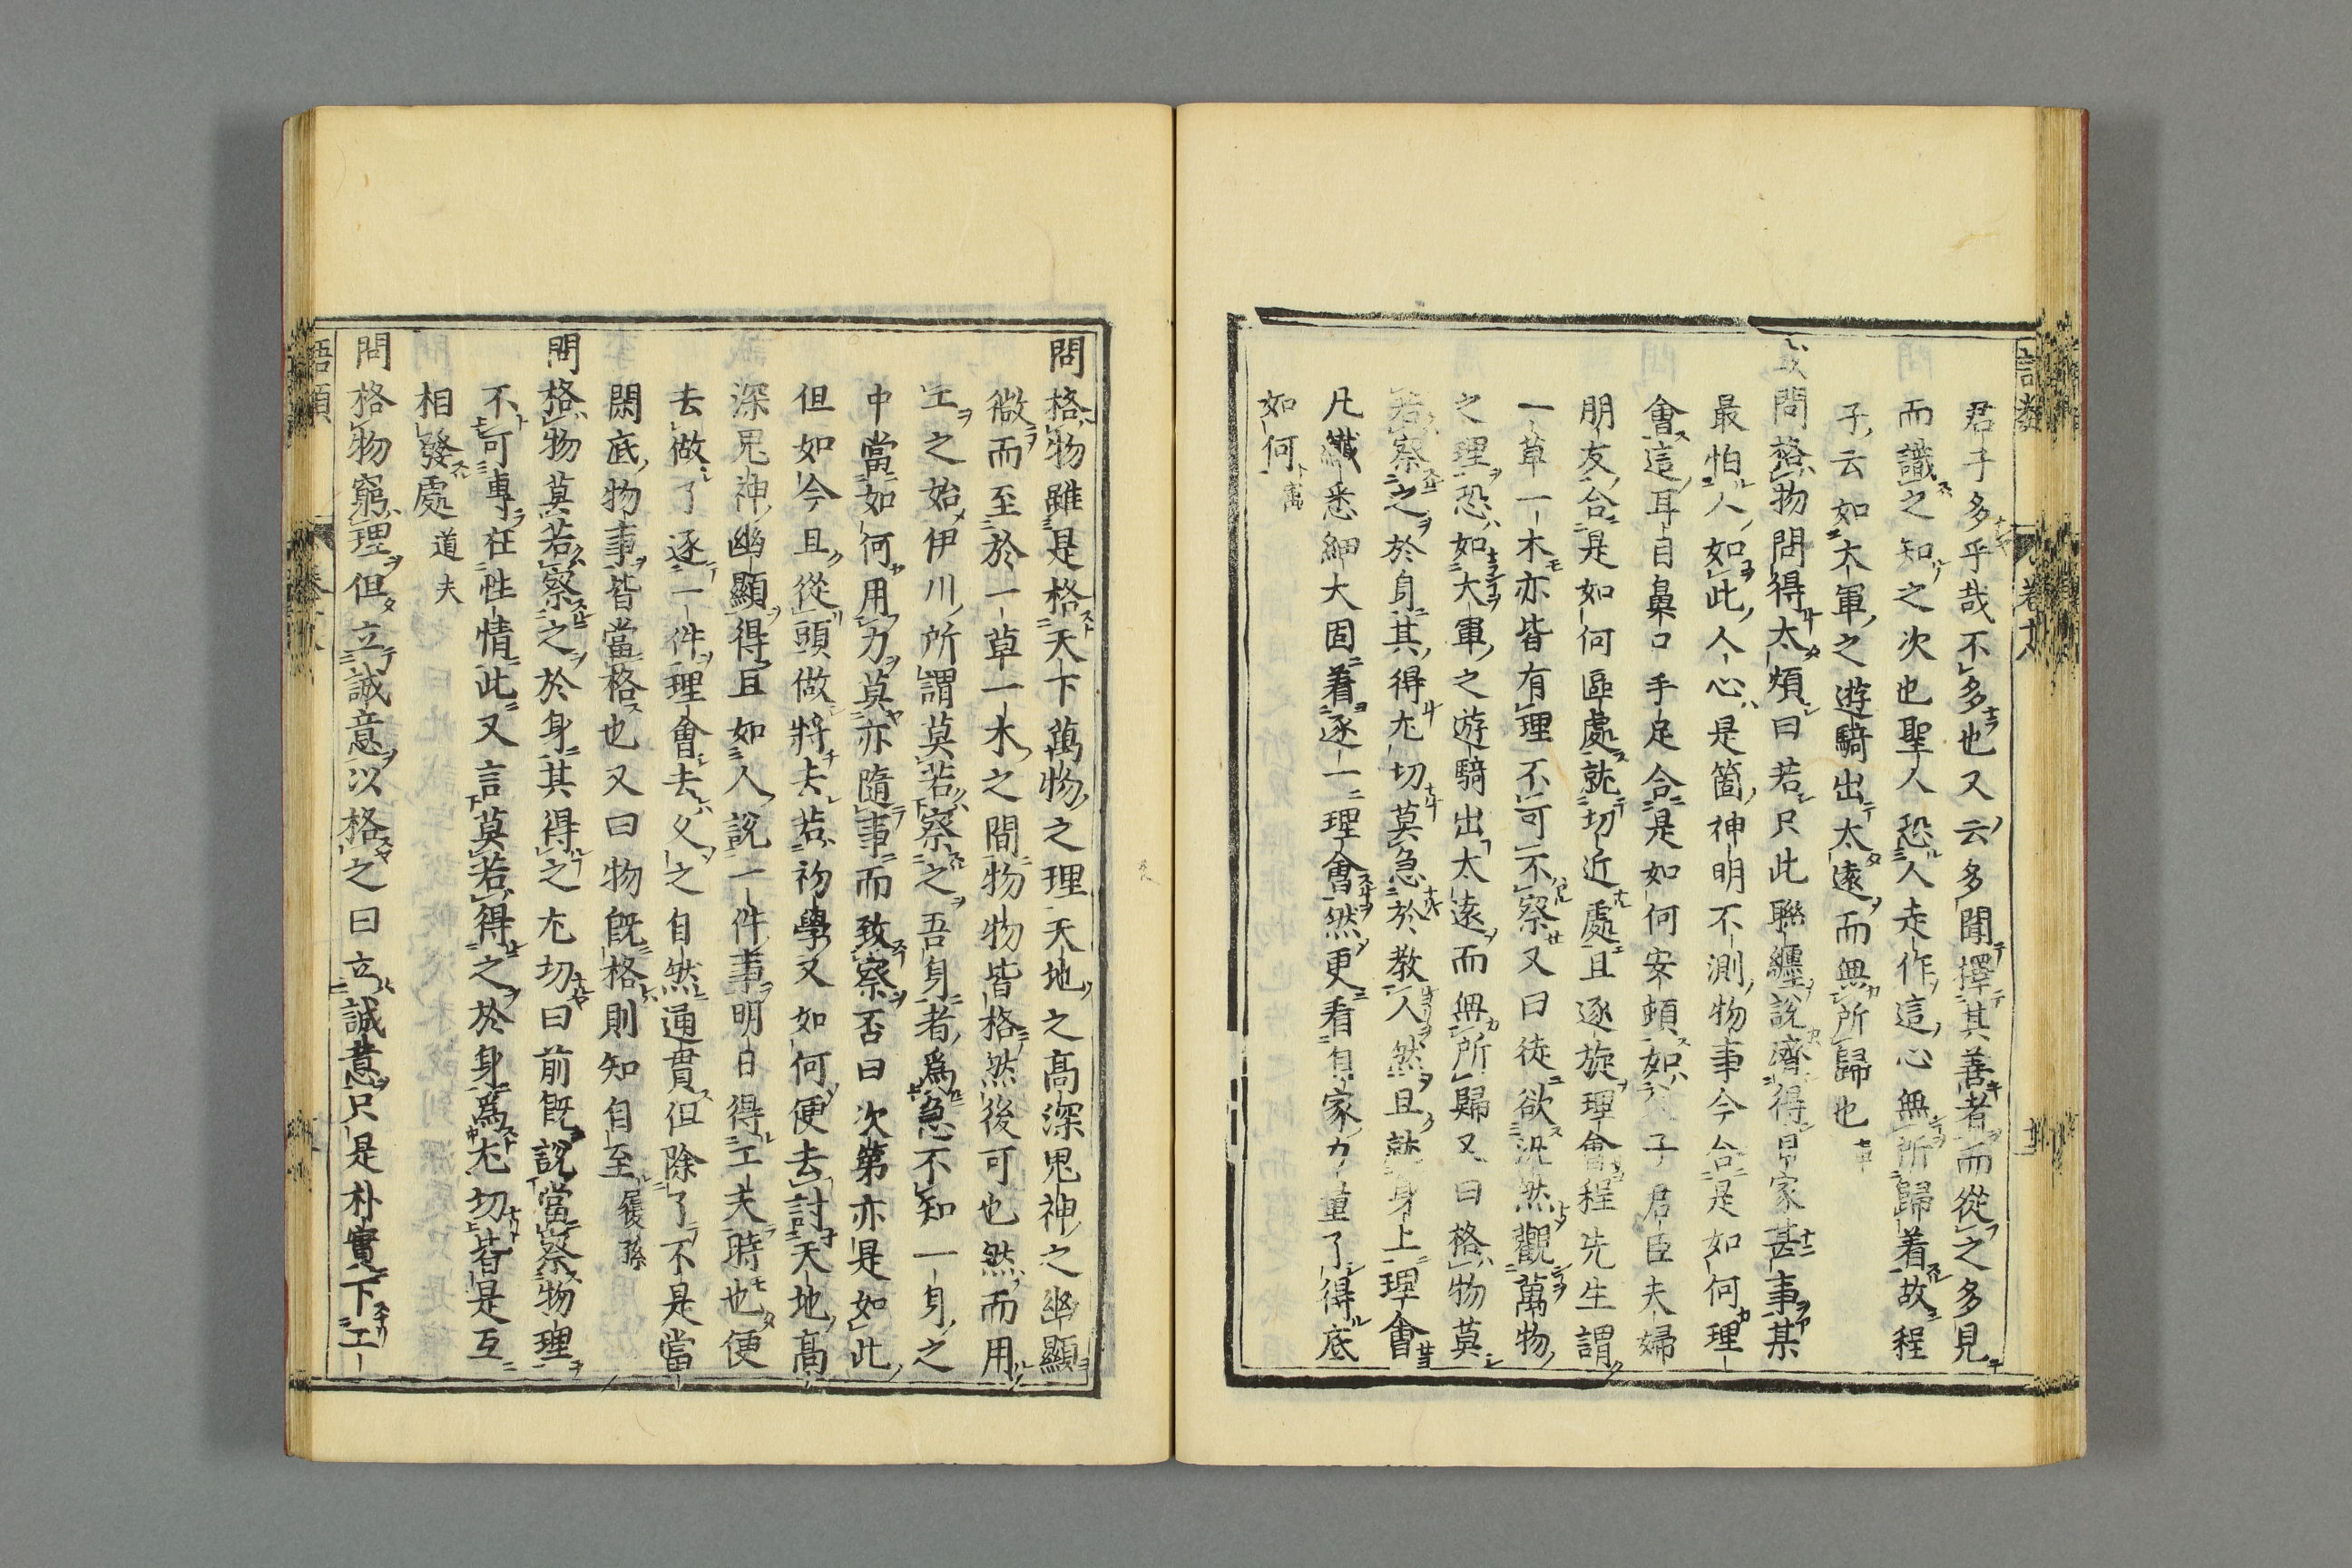 君子多乎哉不多也又云多聞擇其善者而從之多見
而識之知之次也聖人恐人走作這心無所歸着故程
子云如大軍之遊騎出太遠而無所歸也
或問格物問得太煩曰若只此聯纏說濟得自家甚事某
最怕人如此人心是箇神明不測物事今合是如何理
會這耳目鼻口手足合是如何安頓如父子君臣夫婦
朋友合是如何區處就切近處且逐旋理會程先生謂
一草一木亦皆有理不可不察又曰徒欲汎然觀萬物
之理恐如大軍之遊騎出太遠而無所歸又曰格物莫
若察之於身其得尤切莫急於教人然且就身上理會
凡纖悉細大固着逐一理會然更看自家力量了得底
如何㝢
問格物雖是格天下萬物之理天地之高深鬼神之幽顯
微而至於一草一木之間物物皆格然後可也然而用
工之始伊川所謂莫若察之吾身者爲急不知一身之
中當如何用力莫亦隨事而致察否曰次第亦是如此
但如今且從頭做將去若初學又如何便去討天地高
深鬼神幽顯得且如人說一件事明日得工夫時也便
去做了逐一件理會去久之自然通貫但除了不是當
閑底物事皆當格也又曰物旣格則知自至履孫
問格物莫若察之於身其得之尤切曰前旣說當察物理
不可專在性情此又言莫若得之於身爲尤切皆是互
相發處道夫
問格物窮理但立誠意以格之曰立誠意只是朴實下工